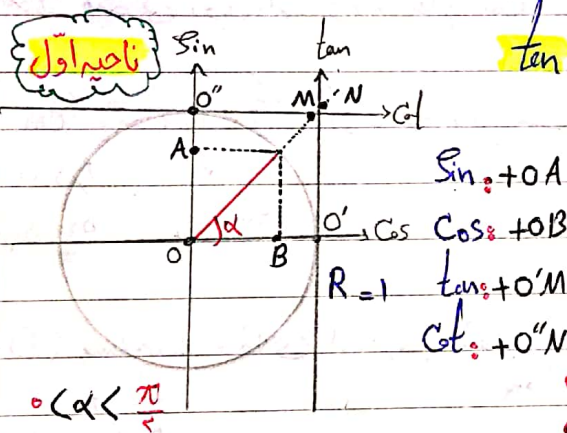 ناحیه اوّل
Sin
tan
ten
O"
M
'N
Cot
A
Sin: +OA
α
O'
Cos
Cos: +OB
O
B
R=1
tan: +O'M
Cot: +O"N
۰<α<π/۲